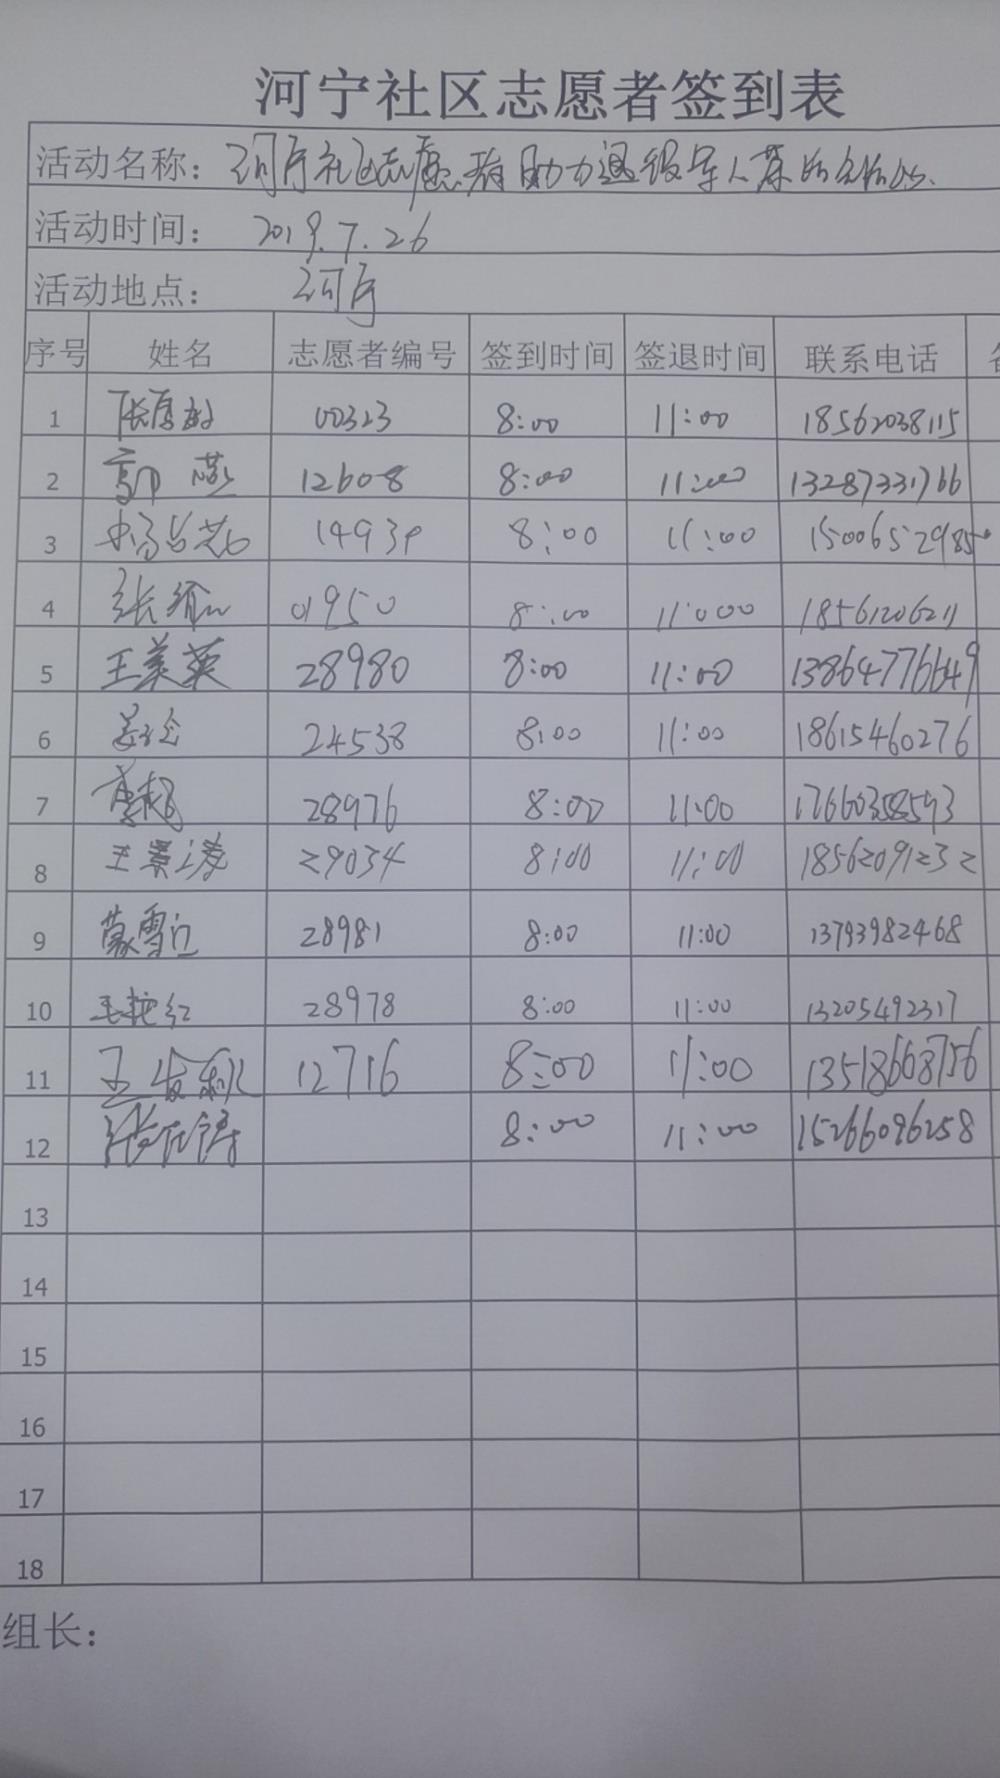 河宁社区志愿者签到表
活动名称：河宁社区志愿者助力退役军人
活动时间：2019.7.26
活动地点：河宁
序号 姓名 志愿者编号 签到时间 签退时间 联系电话
1 00323 8:00 11:00 18562038115
2 12608 8:00 11:00 13287331766
3 14939 8:00 11:00 1500652985
4 张 01950 8:00 11:000 18561206211
5 王美英 28980 8:00 11:00 13864776649
6 24538 8:00 11:00 18615460276
7 28976 8:00 11:00 17660358593
8 王 29034 8:00 11:00 18562091232
9 蒙雪 28981 8:00 11:00 13793982468
10 红 28978 8:00 11:00 13205492317
11 王 12716 8:00 11:00 13518668756
12 8:00 11:00 15266096258
13
14
15
16
17
18
组长：